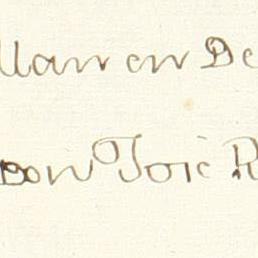 llan en De
Don Joić R